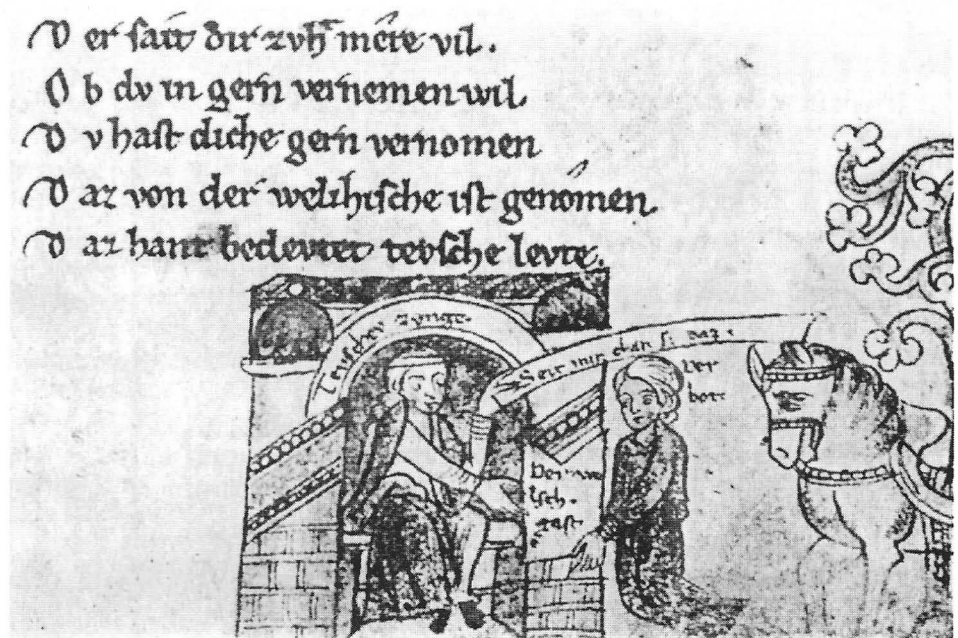 D er sait dir zvht mere vil.
O b dv in gern vernemen wil
D v hast diche gern vernomen
D az von der welhische ist genomen.
D az hant bedevtet tevsche levte.
tevschev zvnge.
Seit mir
der
bott
Der wæ
lsch.
gast